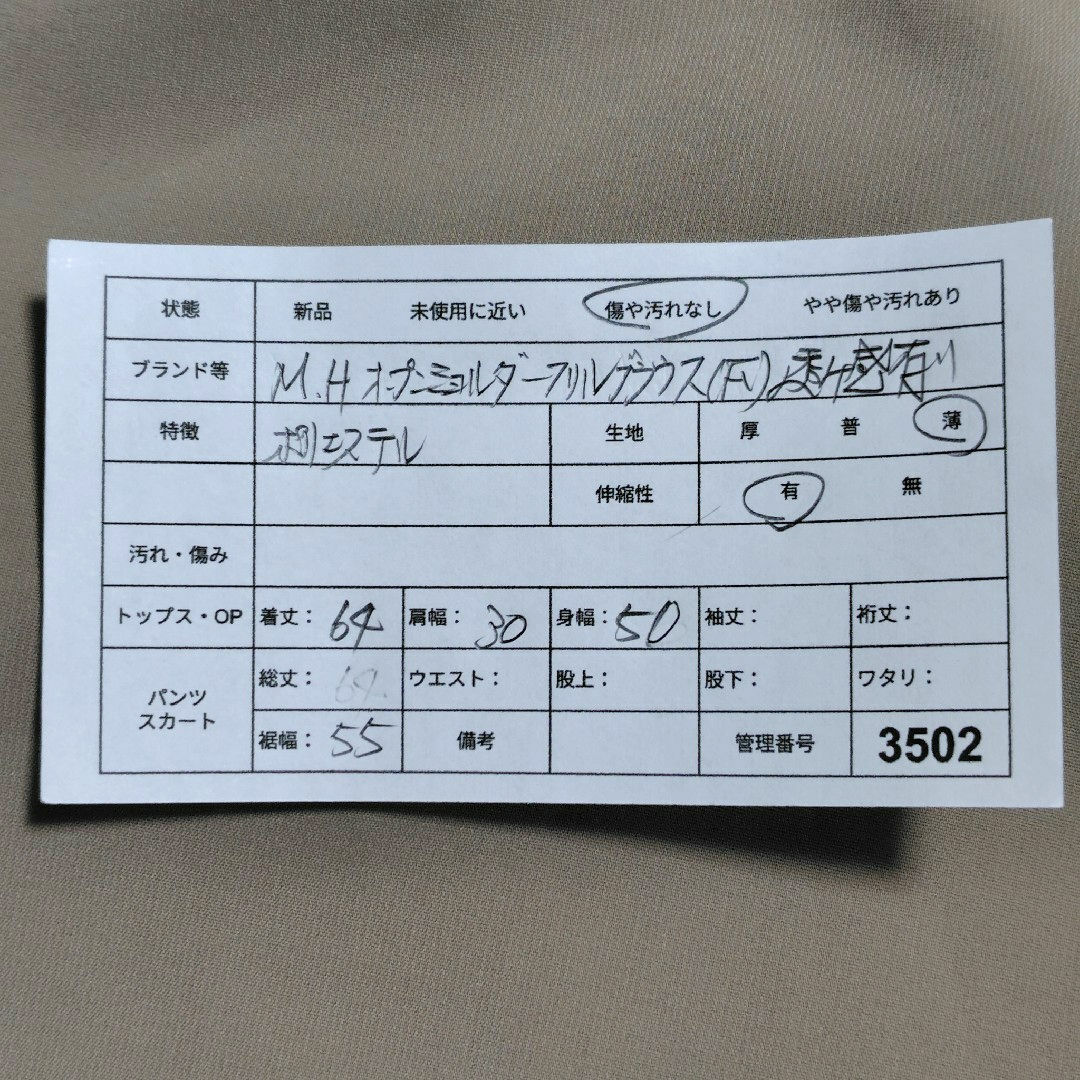 状態 新品 未使用に近い 傷や汚れなし やや傷や汚れあり
ブランド等 M.H オープンショルダーフリルブラウス(F) 透け感有り
特徴 ポリエステル 生地 厚 普 薄
伸縮性 有 無
汚れ・傷み
トップス・OP 着丈: 64 肩幅: 30 身幅: 50 袖丈: 裄丈:
パンツ スカート 総丈: 64 ウエスト: 股上: 股下: ワタリ:
裾幅: 55 備考 管理番号 3502